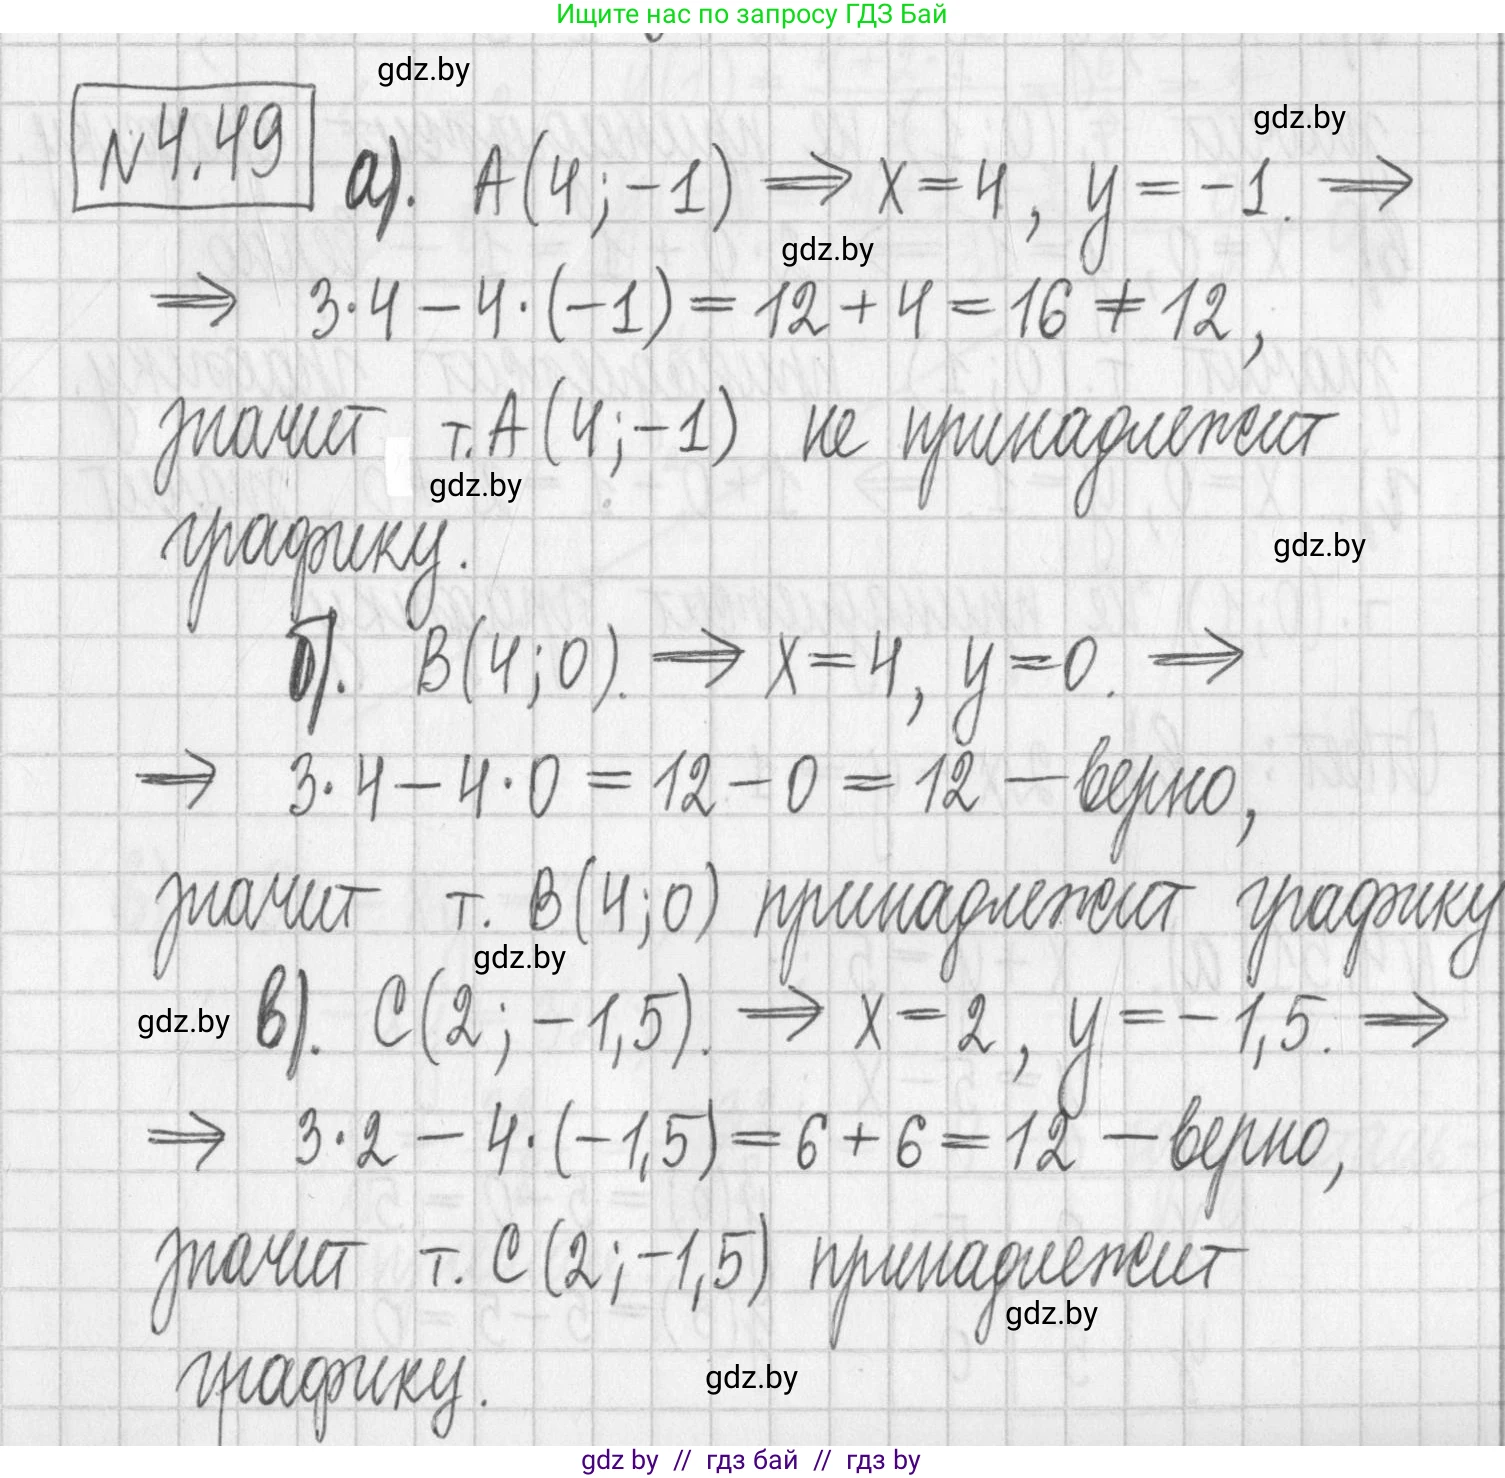 Ищите нас по запросу ГДЗ Бай
gdz.by
gdz.by
N4.49 а). A(4;-1) ⟹ x=4, y=-1. ⟹
gdz.by
⟹ 3·4-4·(-1)=12+4=16≠12,
значит т.A(4;-1) не принадлежит
gdz.by
графику.
gdz.by
б). B(4;0). ⟹ x=4, y=0. ⟹
⟹ 3·4-4·0=12-0=12 — верно,
значит т. B(4;0) принадлежит графику
gdz.by
gdz.by
в). C(2;-1,5). ⟹ x=2, y=-1,5. ⟹
⟹ 3·2-4·(-1,5)=6+6=12 — верно,
значит т. C(2;-1,5) принадлежит
gdz.by
графику.
gdz.by
gdz by // гдз бай // gdz by